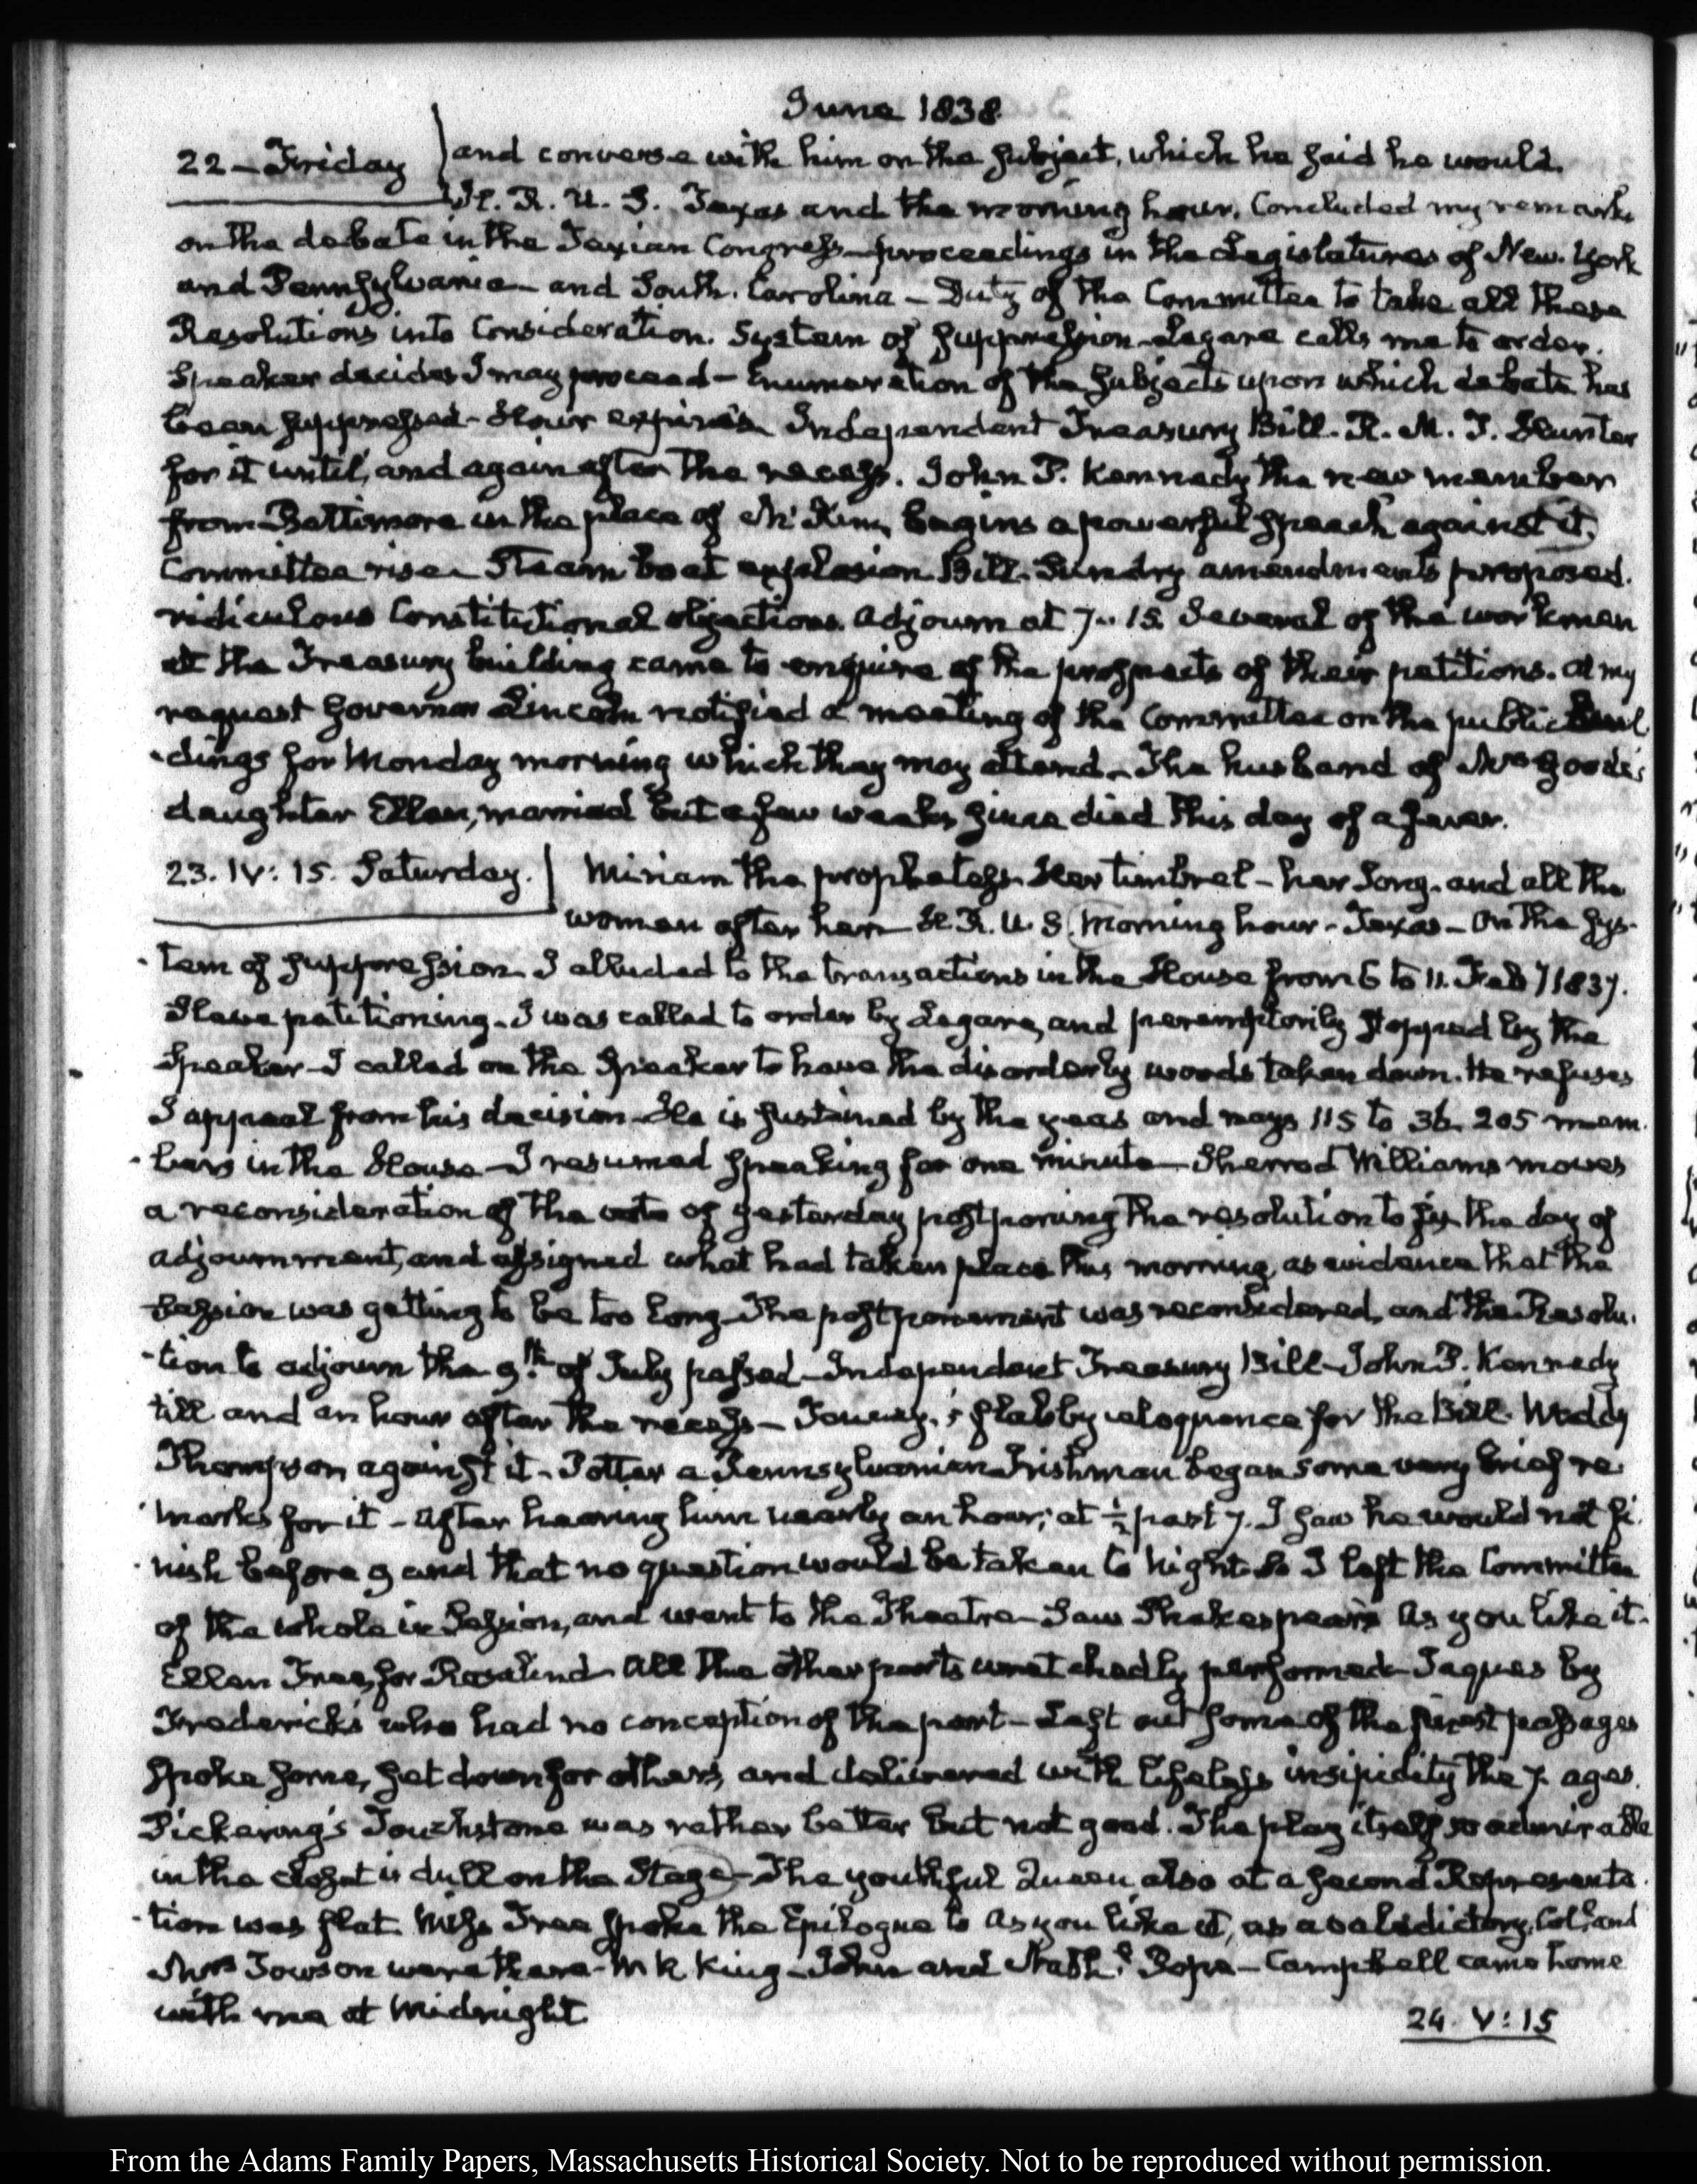 June 1838
22 - Friday } and converse with him on the subject, which he said he would.
H. R. U. S. Texas and the morning hour. Concluded my remarks
on the debate in the Texian Congress - proceedings in the Legislatures of New-York
and Pennsylvania - and South-Carolina - Duty of the Committee to take all these
Resolutions into Consideration. System of suppression - Legare calls me to order.
Speaker decides I may proceed - Enumeration of the subjects upon which debate has
been suppressed - Hour expires. Independent Treasury Bill. R. M. T. Hunter
for it until, and again after the recess. John P. Kennedy the new member
from Baltimore in the place of McKim, begins a powerful speech against it.
Committee rise - Steam boat explosion Bill. Sundry amendments proposed.
ridiculous Constitutional objections. Adjourn at 7.. 15. Several of the workmen
at the Treasury building came to enquire of the prospects of their petitions. At my
request Governor Lincoln notified a meeting of the Committee on the public Buil
-dings for Monday morning which they may attend - The husband of Mrs Goods
daughter Ellen, married but a few weeks since died this day of a fever.
23. IV: 15. Saturday. | Miriam the prophetess - Her timbrel - her song - and all the
women after her - H. R. U. S. Morning hour - Texas - On the sys-
-tem of suppression I alluded to the transactions in the House from 6 to 11. Feby 1837.
Slave petitioning - I was called to order by Legare, and peremptorily stopped by the
Speaker - I called on the Speaker to have the disorderly words taken down. He refuses
I appeal from his decision - He is sustained by the yeas and nays 115 to 36. 205 mem-
-bers in the House - I resumed speaking for one minute - Sherrod Williams moves
a reconsideration of the vote of yesterday postponing the resolution to fix the day of
adjournment, and assigned what had taken place this morning, as evidence that the
Session was getting to be too long - The postponement was reconsidered, and the Resolu-
-tion to adjourn the 9th of July passed - Independent Treasury Bill - John P. Kennedy
till and an hour after the recess - flabby eloquence for the Bill. Waddy
Thompson against it - Potter a Pennsylvanian Irishman began some very brief re-
-marks for it - After hearing him nearly an hour, at ½ past 7. I saw he would not fi-
-nish before 9 and that no question would be taken to night so I left the Committee
of the whole in Session, and went to the Theatre - Saw Shakespear's As you like it -
Ellen Tree, for Rosalind - All the other parts wretchedly performed - Jaques by
Fredericks who had no conception of the part - Left out some of the finest passages
spoke some, set down for others, and delivered with lifeless insipidity the 7. ages.
Pickering's Touchstone was rather better but not good. The play itself so admirable
in the closet is dull on the Stage - The youthful Queen also at a second Representa-
-tion was flat. Miss Tree spoke the Epilogue to As you like it, as a valedictory. Coll. and
Mrs Towson were there - Mr King - John and Nathl. Pope - Campbell came home
with me at Midnight.
24. V: 15
From the Adams Family Papers, Massachusetts Historical Society. Not to be reproduced without permission.